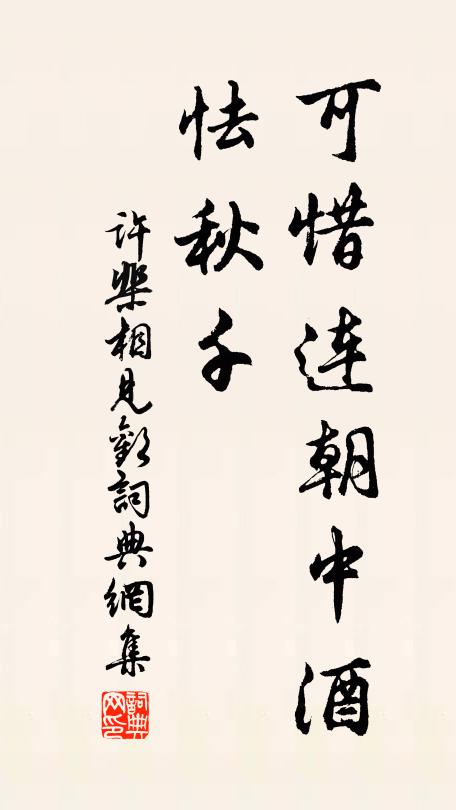 可惜连朝中酒
怯秋千
许棐相见欢词典網集
詞典网印